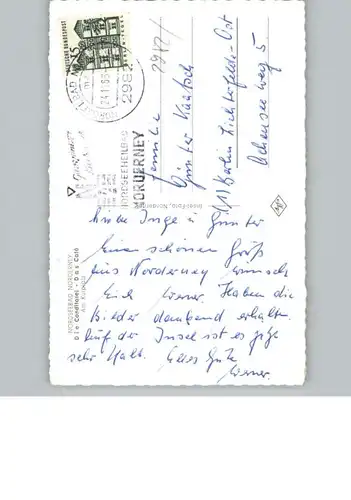 DEUTSCHE BUNDESPOST
15
2982
NORDSEEHEILBAD
NORDERNEY
2982/
Familie
Günter
1/1 Berlin Lichterfelde-Ost
5
Liebe Inge u Günter
Einen schönen Gruß
aus Norderney wünscht
Euch Werner. Haben die
Bilder dankend erhalten.
Auf der Insel ist es jetzt
sehr kalt. Alles Gute
Werner.
NORDSEEBAD NORDERNEY
Die Conditorei - Das Café
Am Kurplatz